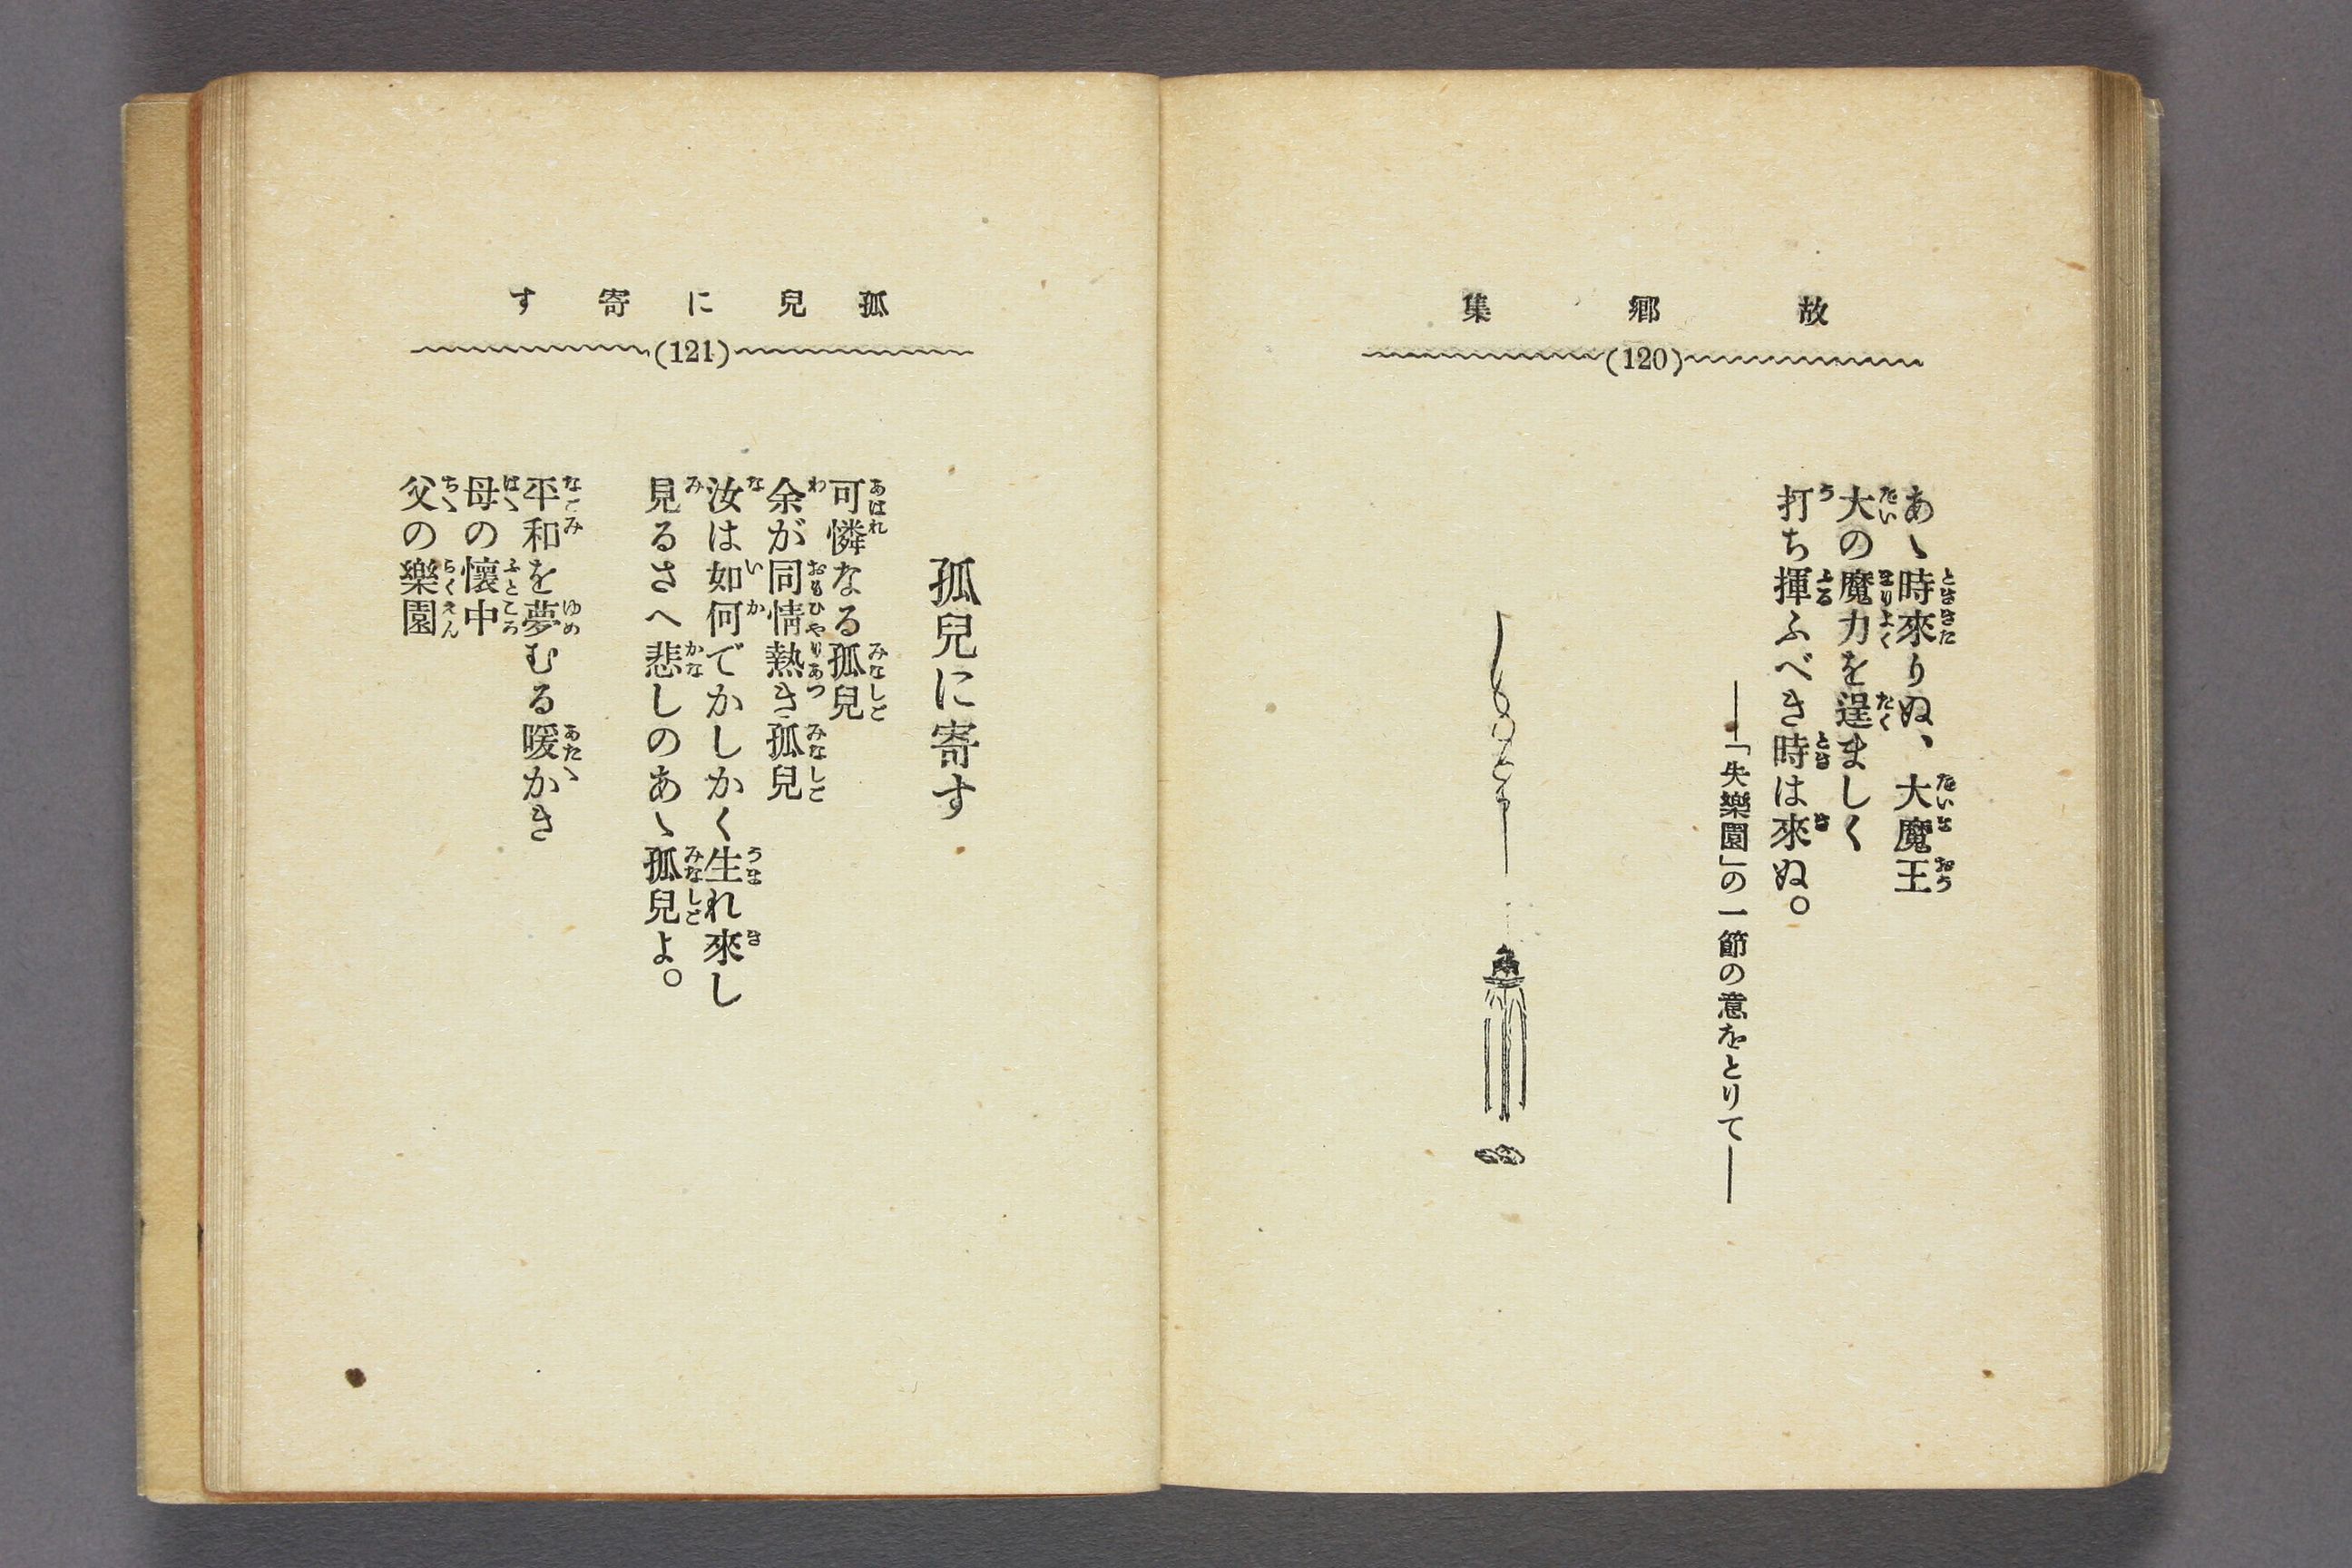 故鄉集
(120)
あゝ時來りぬ、大魔王
大の魔力を逞ましく
打ち揮ふべき時は來ぬ。
――「失樂園」の一節の意をとりて――
孤兒に寄す
(121)
孤兒に寄す
可憐なる孤兒
余が同情熱き孤兒
汝は如何でかしかく生れ來し
見るさへ悲しのあゝ孤兒よ。
平和を夢むる暖かき
母の懷中
父の樂園